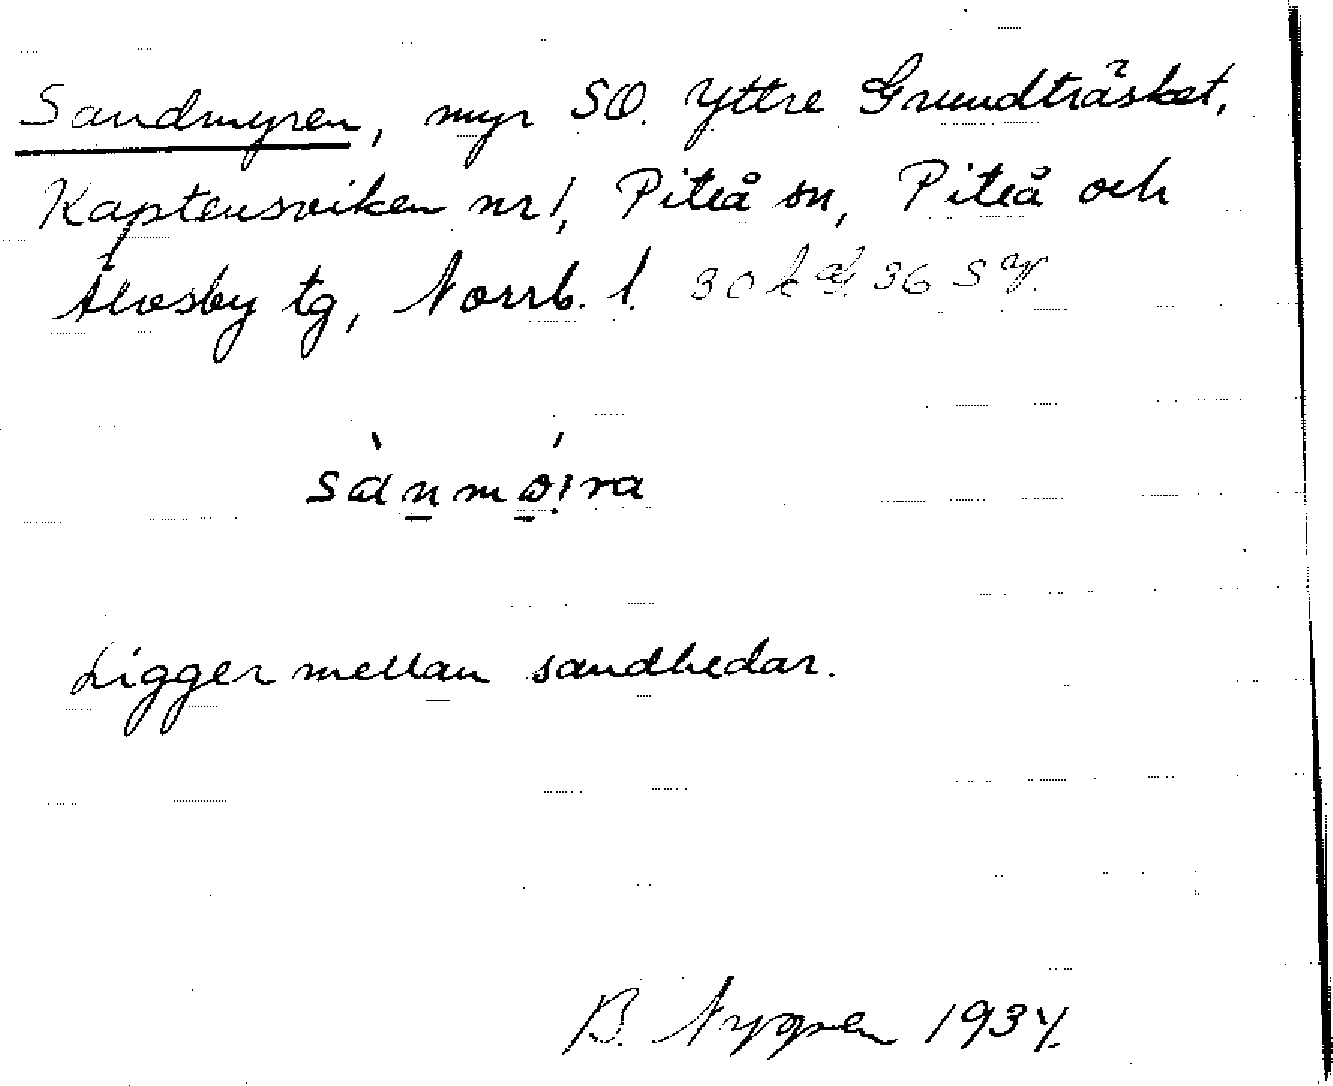 Sandmyren, myr SO. Yttre Grundträsket,
Kaptensviken nr 1, Piteå sn, Piteå och
Älvsby tg, Norrb. l.
Ligger mellan sandhedar.
B. Nygren 1934.